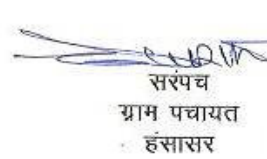 सरंपच
ग्राम पचायत
हंसासर